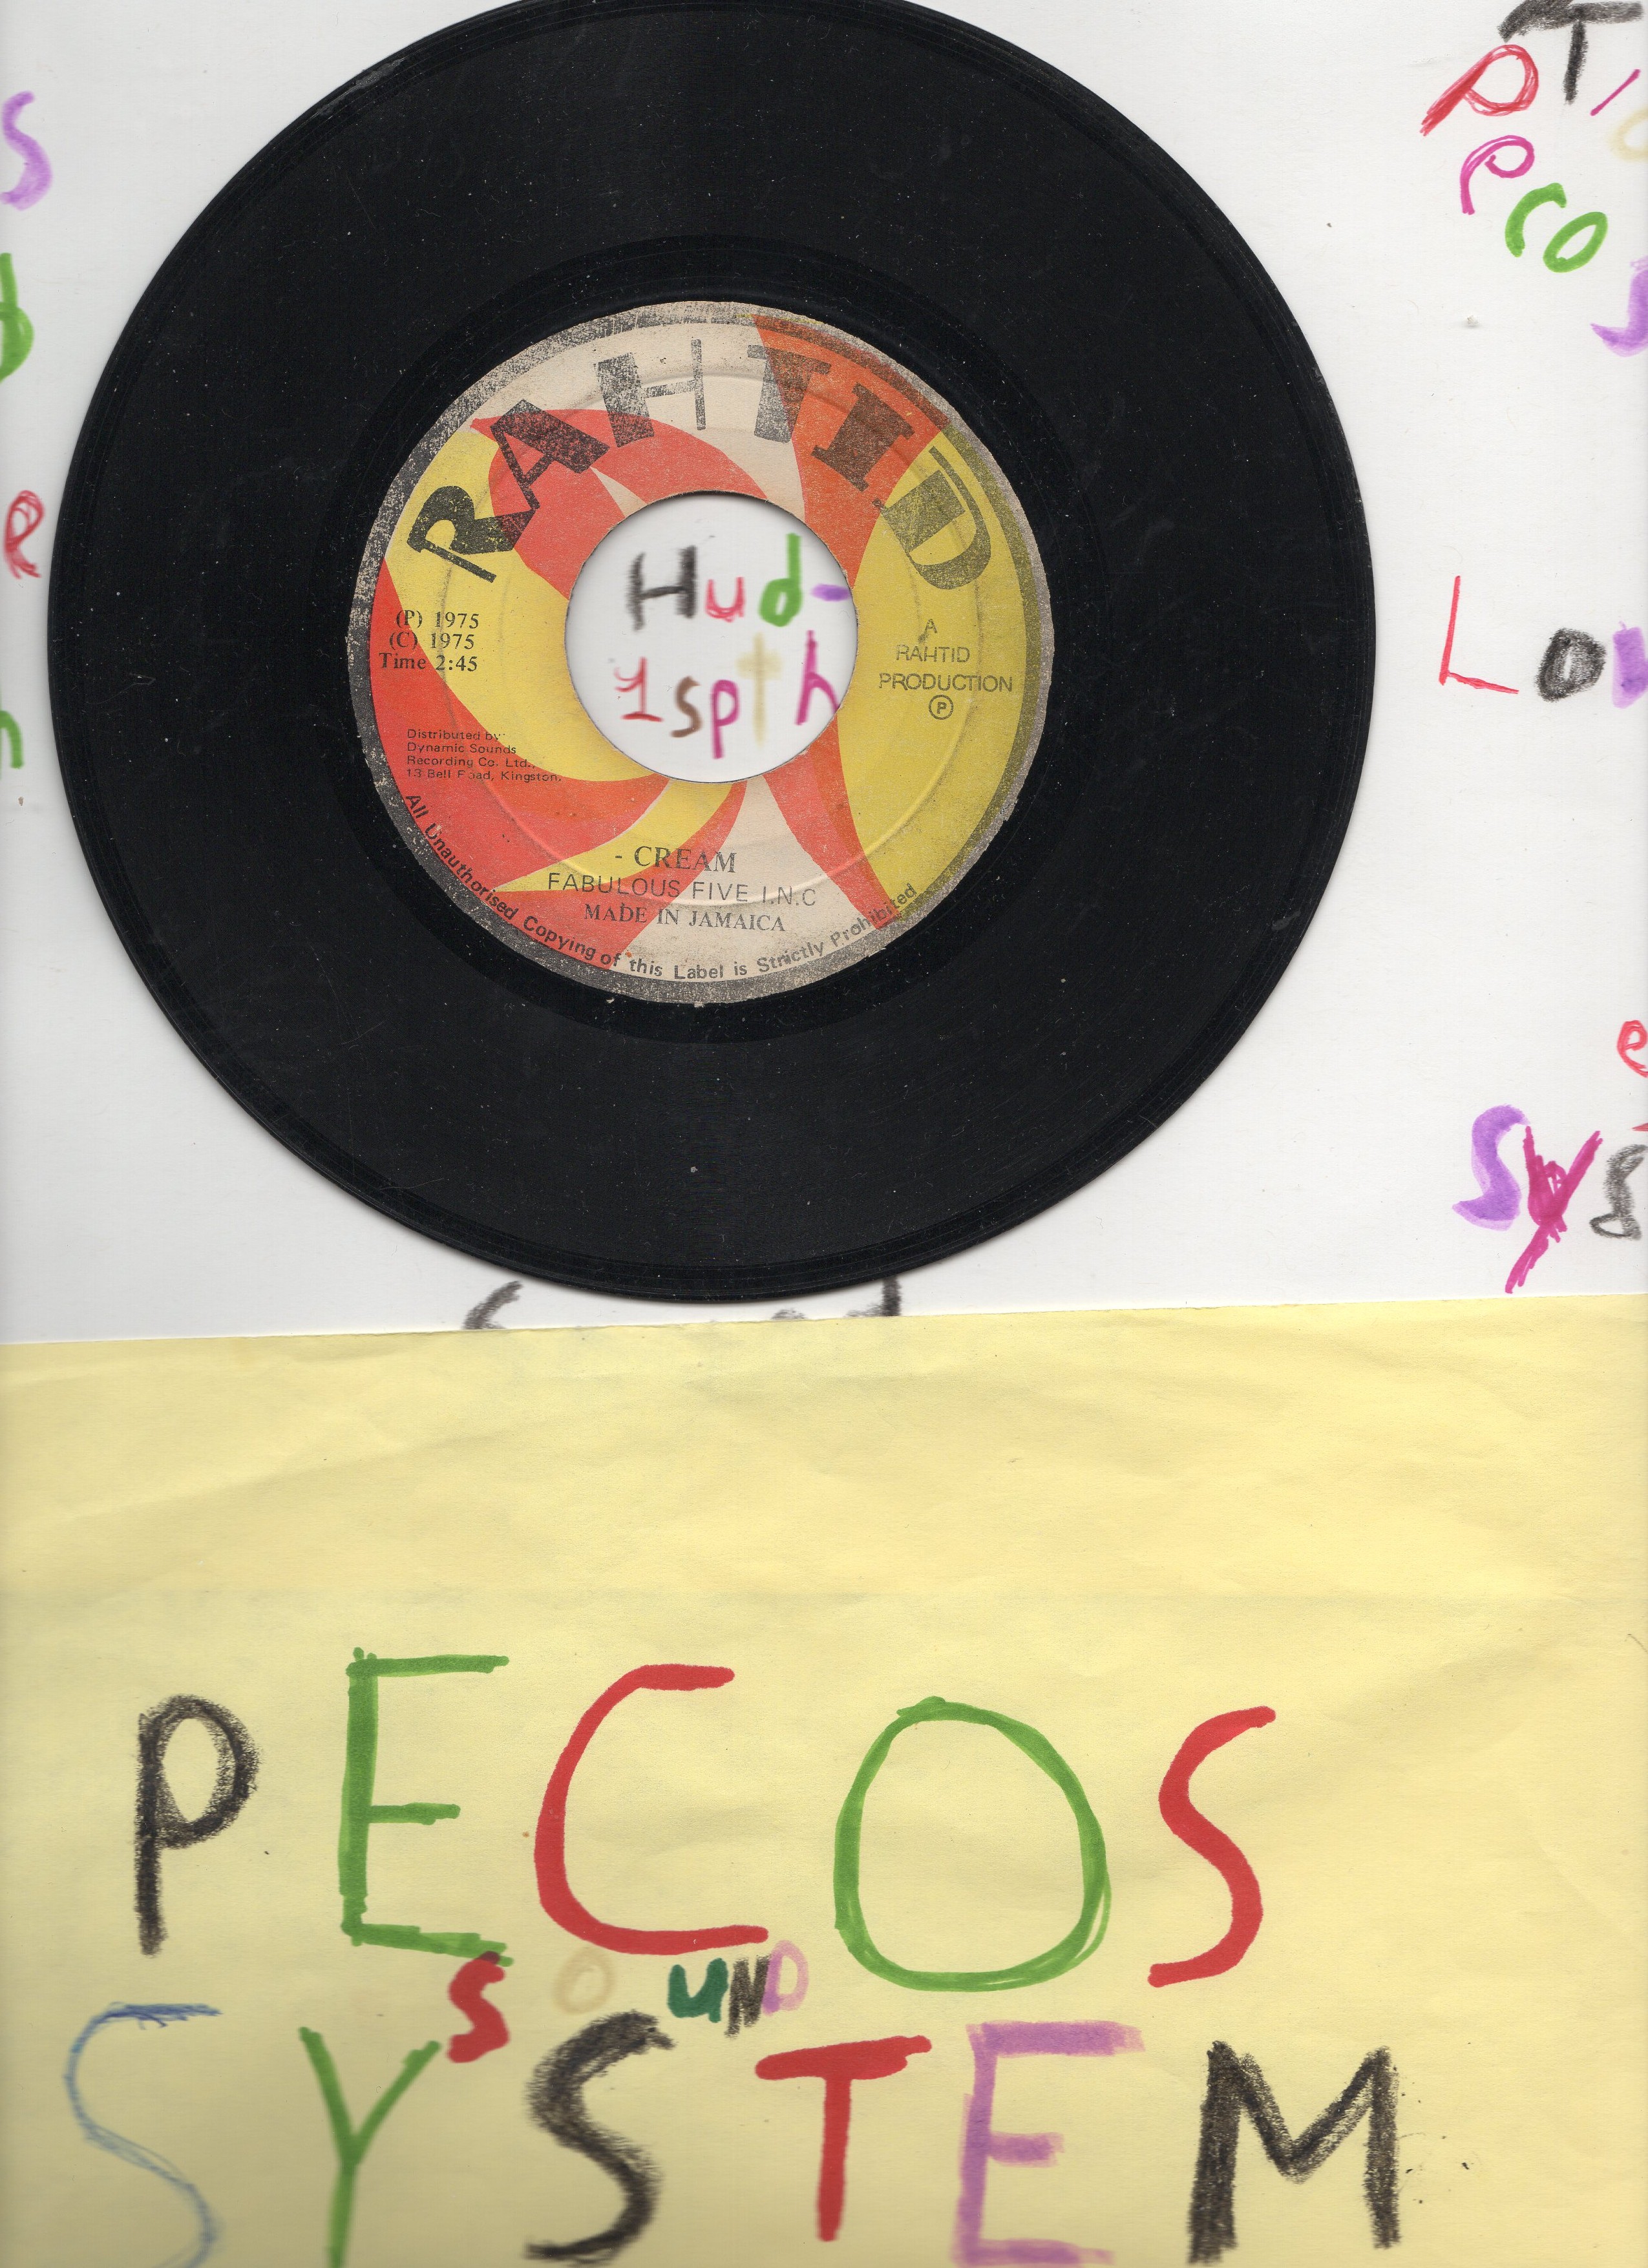 RAHTID
(P) 1975
(C) 1975
Time 2:45
Hud-
1spth
A
RAHTID
PRODUCTION
Ⓟ
Distributed by:
Dynamic Sounds
Recording Co. Ltd.,
13 Bell Road, Kingston.
- CREAM
FABULOUS FIVE I.N.C
MADE IN JAMAICA
All Unauthorised Copying of this Label is Strictly Prohibited
Pecos
PECOS
SOUND
SYSTEM